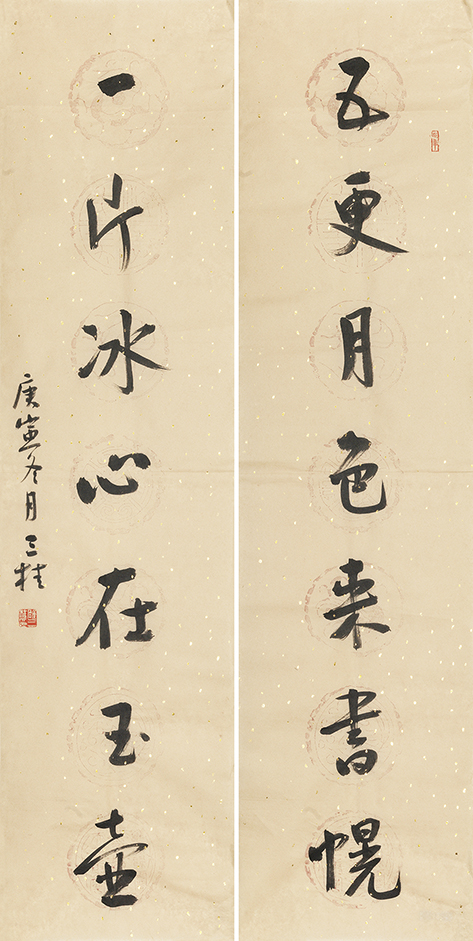 五更月色来書幌
一片冰心在玉壶
庚寅冬月三桂